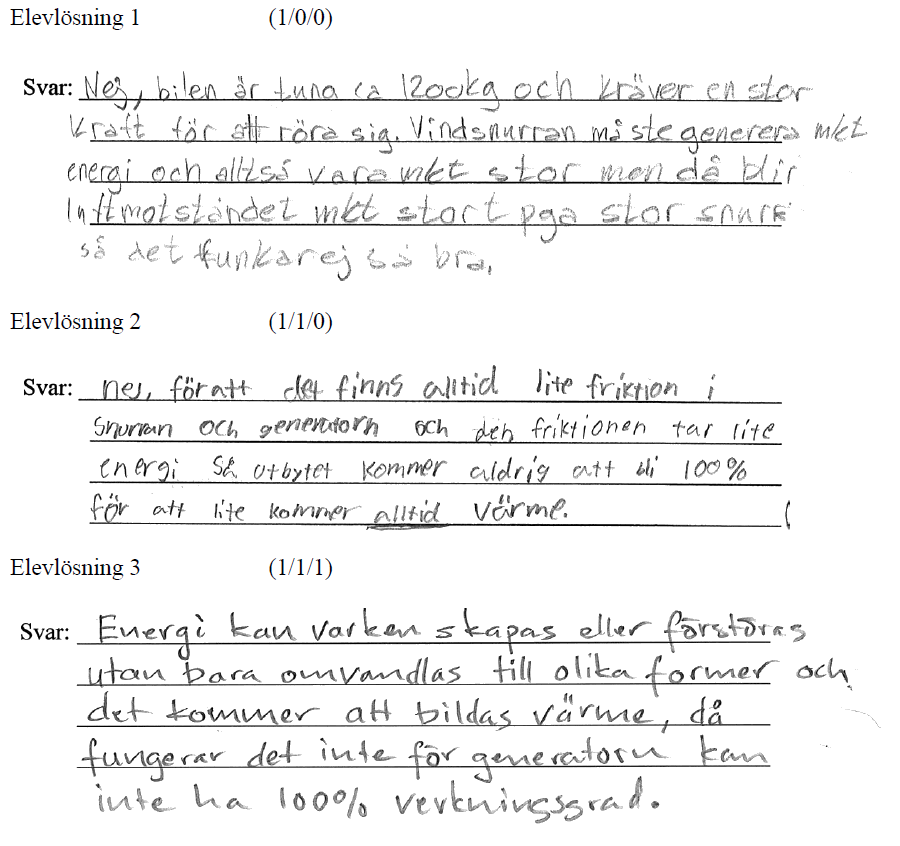 Elevlösning 1 (1/0/0)
Svar: Nej, bilen är tuna ca 1200kg och kräver en stor
kraft för att röra sig. Vindsnurran måste generera mkt
energi och alltså vara mkt stor men då blir
luftmotståndet mkt stort pga stor snurr
så det funkar ej så bra.
Elevlösning 2 (1/1/0)
Svar: nej, för att det finns alltid lite friktion i
snurran och generatorn och den friktionen tar lite
energi så utbytet kommer aldrig att bli 100%
för att lite kommer alltid värme.
Elevlösning 3 (1/1/1)
Svar: Energi kan varken skapas eller förstöras
utan bara omvandlas till olika former och
det kommer att bildas värme, då
fungerar det inte för generatorn kan
inte ha 100% verkningsgrad.